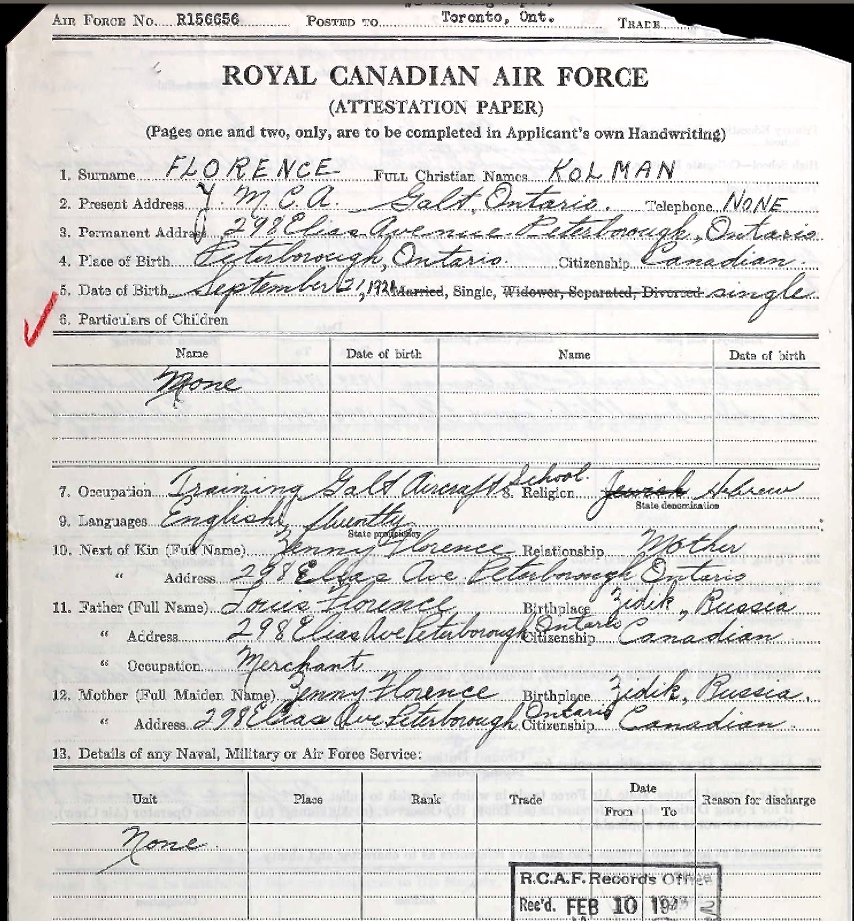 AIR FORCE NO. R156656 POSTED TO Toronto, Ont. TRADE
ROYAL CANADIAN AIR FORCE
(ATTESTATION PAPER)
(Pages one and two, only, are to be completed in Applicant's own Handwriting)
1. Surname FLORENCE FULL Christian Names KOLMAN
2. Present Address Y.M.C.A. Galt, Ontario. Telephone NONE
3. Permanent Address 298 Elias Avenue Peterborough, Ontario
4. Place of Birth Peterborough, Ontario. Citizenship Canadian.
5. Date of Birth September 21, Married, Single, Widower, Separated, Divorced single
6. Particulars of Children
Name Date of birth Name Date of birth
None
7. Occupation Training Galt Aircraft School. 8. Religion Jewish Hebrew
State denomination
9. Languages English, fluently
State proficiency
10. Next of Kin (Full Name) Jenny Florence Relationship Mother
" Address 298 Elias Ave Peterborough Ontario
11. Father (Full Name) Louis Florence Birthplace Zidik, Russia
" Address 298 Elias Ave Peterborough Ontario Citizenship Canadian
" Occupation Merchant
12. Mother (Full Maiden Name) Jenny Florence Birthplace Zidik, Russia.
" Address 298 Elias Ave Peterborough Ontario Citizenship Canadian.
13. Details of any Naval, Military or Air Force Service:
Unit Place Rank Trade Date From To Reason for discharge
None.
R.C.A.F. Records Office
Rec'd. FEB 10